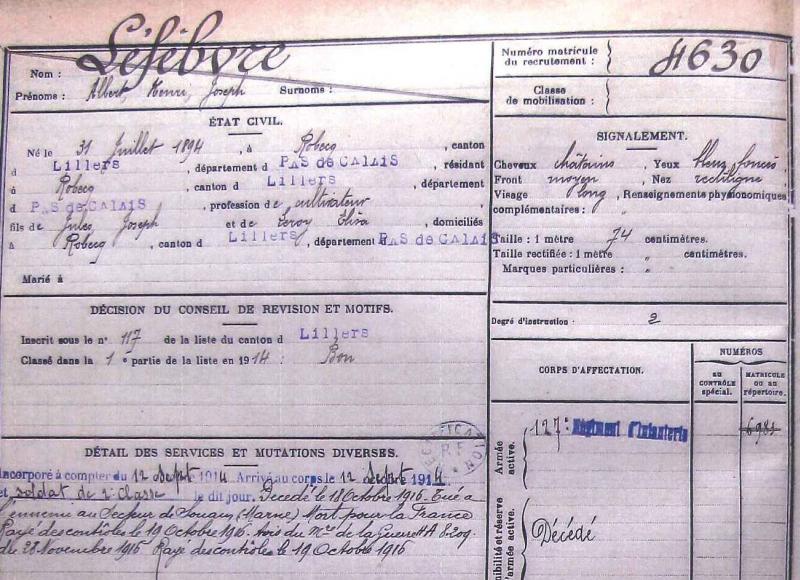 Lefebvre
Nom :
Prénoms : Albert, Henri, Joseph Surnoms :
Numéro matricule
du recrutement : 4630
Classe
de mobilisation :
ÉTAT CIVIL.
Né le 31 Juillet 1894, à Robecq, canton
d Lillers, département d PAS de CALAIS, résidant
à Robecq, canton d Lillers, département
d PAS de CALAIS, profession de cultivateur
fils de Jules, Joseph et de Leroy Elisa, domiciliés
à Robecq, canton d Lillers, département d PAS de CALAIS
Marié à
SIGNALEMENT.
Cheveux châtains Yeux bleus foncés
Front moyen Nez rectiligne
Visage long, Renseignements physionomiques
complémentaires : "
Taille : 1 mètre 74 centimètres.
Taille rectifiée : 1 mètre " centimètres.
Marques particulières : "
Degré d'instruction : 2
DÉCISION DU CONSEIL DE REVISION ET MOTIFS.
Inscrit sous le n° 117 de la liste du canton d Lillers
Classé dans la 1e partie de la liste en 1914 : Bon
DÉTAIL DES SERVICES ET MUTATIONS DIVERSES.
Incorporé à compter du 12 Sept 1914 Arrivé au corps le 12 Septbre 1914
et soldat de 2e Classe le dit jour. Décédé le 18 Octobre 1915 Tué à
l'ennemi au Secteur de Souain (Marne) Mort pour la France
Rayé des contrôles le 19 Octobre 1915. Avis du Mre de la Guerre HA 8209
du 28 Novembre 1915 Rayé des contrôles le 19 Octobre 1915
CORPS D'AFFECTATION.
NUMÉROS
AU
CONTRÔLE
spécial.
MATRICULE
OU AU
répertoire.
Armée
active.
127e Régiment d'Infanterie
Décédé
R.F.